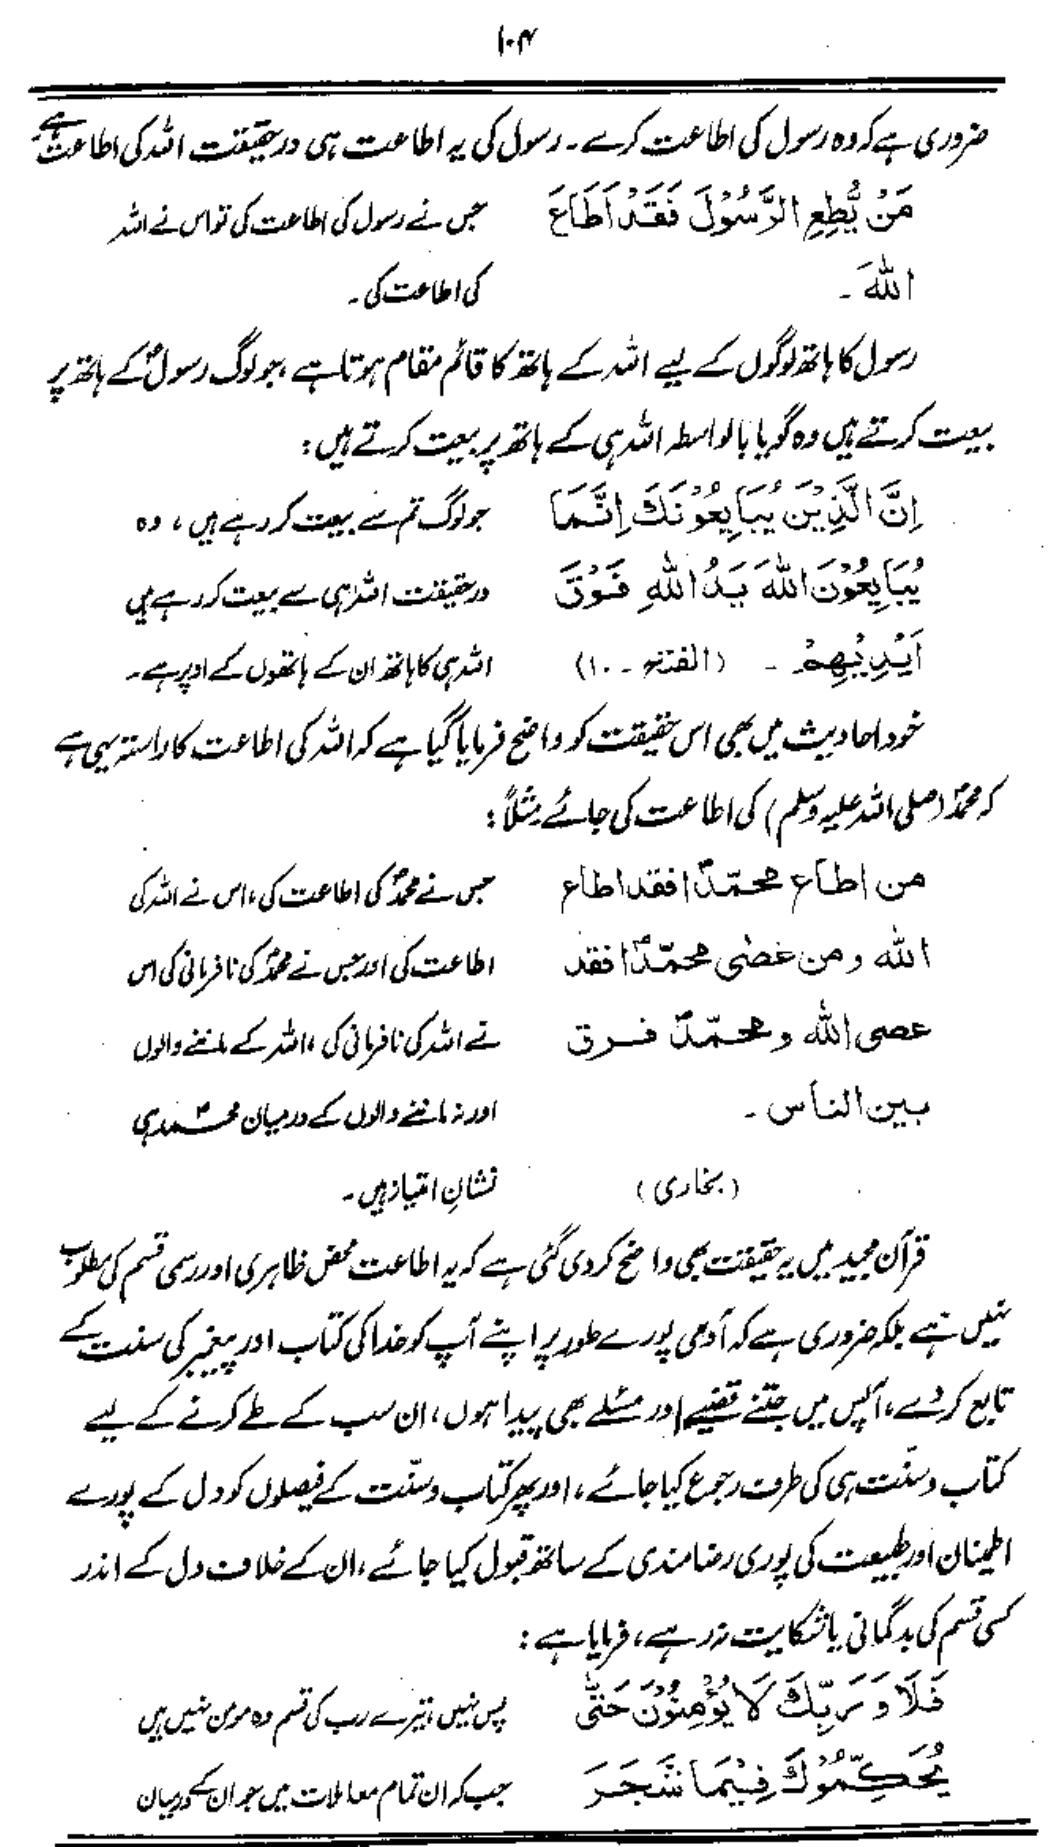 ۱۰۴
ضروری ہے کہ وہ رسول کی اطاعت کرے۔ رسول کی یہ اطاعت ہی درحقیقت اللہ کی اطاعت ہے
مَنْ يُّطِعِ الرَّسُوْلَ فَقَدْ اَطَاعَ جس نے رسول کی اطاعت کی تو اس نے اللہ
اللهَ ۔ کی اطاعت کی۔
رسول کا ہاتھ لوگوں کے لیے اللہ کے ہاتھ کا قائم مقام ہوتا ہے، جو لوگ رسولؐ کے ہاتھ پر
بیعت کرتے ہیں وہ گویا بالواسطہ اللہ ہی کے ہاتھ پر بیعت کرتے ہیں:
اِنَّ الَّذِيْنَ يُبَايِعُوْنَكَ اِنَّمَا جو لوگ تم سے بیعت کر رہے ہیں، وہ
يُبَايِعُوْنَ اللهَ يَدُ اللهِ فَوْقَ درحقیقت اللہ ہی سے بیعت کر رہے ہیں
اَيْدِيْهِمْ ۔ (الفتح ۔ ۱۰) اللہ ہی کا ہاتھ ان کے ہاتھوں کے اوپر ہے۔
خود احادیث میں بھی اس حقیقت کو واضح فرمایا گیا ہے کہ اللہ کی اطاعت کا راستہ یہی ہے
کہ محمدؐ (صلی اللہ علیہ وسلم) کی اطاعت کی جائے مثلاً:
من اطاع محمّدًا فقد اطاع جس نے محمدؐ کی اطاعت کی، اس نے اللہ کی
الله ومن عصٰى محمّدًا فقد اطاعت کی اور جس نے محمدؐ کی نافرمانی کی اس
عصى الله ومحمّدٌ فرق نے اللہ کی نافرمانی کی، اللہ کے ماننے والوں
بين الناس ۔ اور نہ ماننے والوں کے درمیان محمدؐ ہی
(بخاری) نشانِ امتیاز ہیں۔
قرآن مجید میں یہ حقیقت بھی واضح کر دی گئی ہے کہ یہ اطاعت محض ظاہری اور رسمی قسم کی مطلوب
نہیں ہے بلکہ ضروری ہے کہ آدمی پورے طور پر اپنے آپ کو خدا کی کتاب اور پیغمبر کی سنت کے
تابع کر دے، آپس میں جتنے قضیے اور مسئلے بھی پیدا ہوں، ان سب کے طے کرنے کے لیے
کتاب و سنّت ہی کی طرف رجوع کیا جائے، اور پھر کتاب و سنّت کے فیصلوں کو دل کے پورے
اطمینان اور طبیعت کی پوری رضامندی کے ساتھ قبول کیا جائے، ان کے خلاف دل کے اندر
کسی قسم کی بدگمانی یا شکایت نہ رہے، فرمایا ہے:
فَلَا وَرَبِّكَ لَا يُؤْمِنُوْنَ حَتّٰى پس نہیں، تیرے رب کی قسم وہ مومن نہیں ہیں
يُحَكِّمُوْكَ فِيْمَا شَجَرَ جب کہ ان تمام معاملات میں جو ان کے درمیان